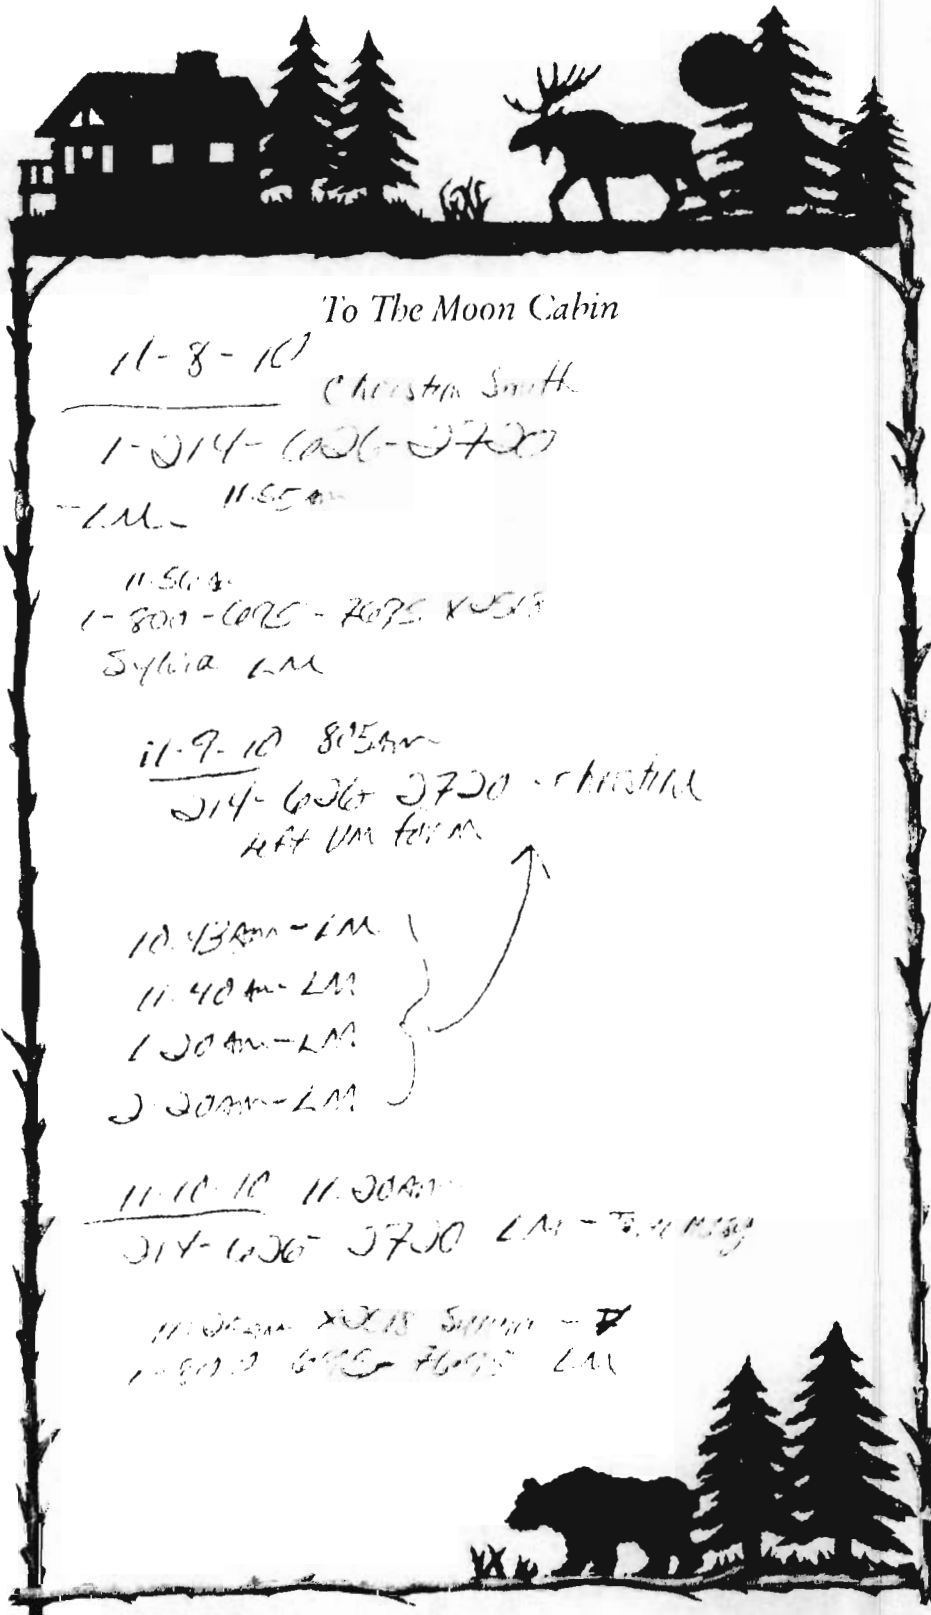 To The Moon Cabin
11-8-10
Christin Smith
1-214-626-2720
-LM- 11:55am
11:56a
1-800-695-7695 x2518
Sylvia LM
11-9-10 805am
214-626-2720 - Christina
left VM for M
10:43am-LM
11:40am-LM
1:20am-LM
2:20am-LM
11-10-10 11:20am
214-626-2720 LM -
11:25am x2518 Sylvia -
1-800 695-7695 LM